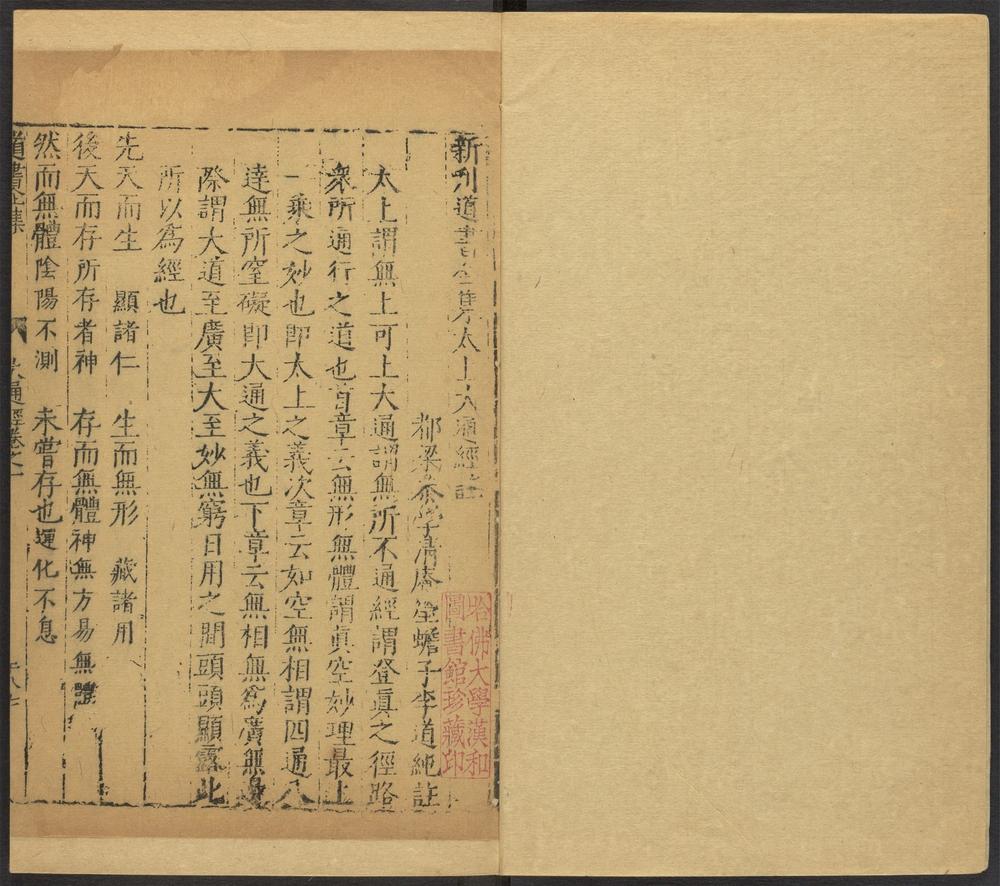 新刊道書全集太上大通經註
都梁參學清庵瑩蟾子李道純註
太上謂無上可上大通謂無所不通經謂登眞之徑路
衆所通行之道也首章云無形無體謂眞空妙理最上
一乘之妙也卽太上之義次章云如空無相謂四通八
達無所窒礙卽大通之義也下章云無相無爲廣無邊
際謂大道至廣至大至妙無窮日用之間頭頭顯露此
所以爲經也
先天而生 顯諸仁 生而無形 藏諸用
後天而存所存者神 存而無體神無方易無體
然而無體陰陽不測 未嘗存也運化不息
道書全集 大通經卷之一
哈佛大學漢和
圖書館珍藏印